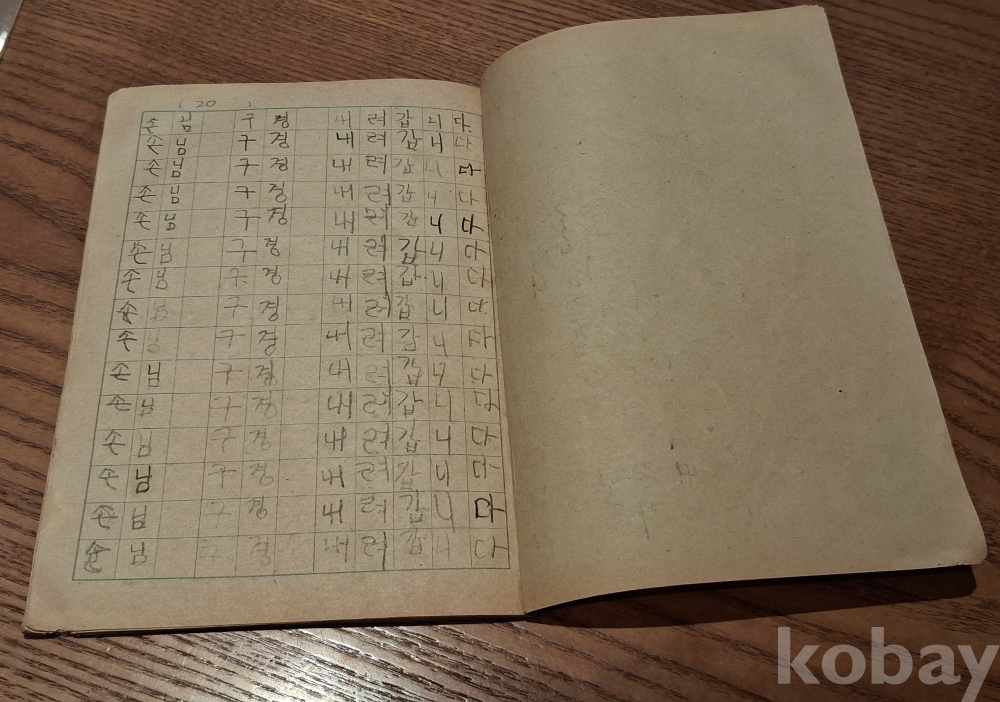 ( 20 )
손님 구경 내려갑니다.
손님 구경 내려갑니다
손님 구경 내려갑니다
손님 구경 내려갑니다
손님 구경 내려갑니다
손님 구경 내려갑니다
손님 구경 내려갑니다
손님 구경 내려갑니다
손님 구경 내려갑니다
손님 구경 내려갑니다
손님 구경 내려갑니다
손님 구경 내려갑니다
손님 구경 내려갑니다
손님 구경 내려갑니다
손님 구경 내려갑니다
kobay